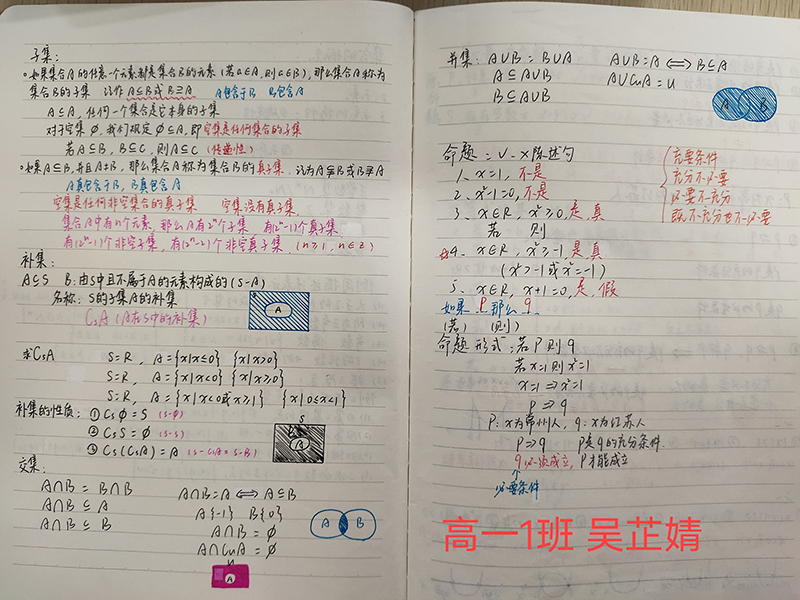 子集:
○如果集合A的任意一个元素都是集合B的元素(若a∈A,则a∈B),那么集合A称为
集合B的子集 记作 A⊆B或B⊇A A包含于B B包含A
A⊆A,任何一个集合是它本身的子集
对于空集∅,我们规定∅⊆A,即空集是任何集合的子集
若A⊆B,B⊆C,则A⊆C(传递性)
○如果A⊆B,并且A≠B,那么集合A称为集合B的真子集 记为A⫋B或B⫌A
A真包含于B,B真包含A
空集是任何非空集合的真子集 空集没有真子集
集合A中有n个元素,那么A有2ⁿ个子集 有(2ⁿ-1)个真子集
有(2ⁿ-1)个非空子集,有(2ⁿ-2)个非空真子集.(n≥1,n∈Z)
补集:
A⊆S B:由S中且不属于A的元素构成的(S-A)
名称:S的子集A的补集
CsA(A在S中的补集)
A
求CsA S=R, A={x|x≤0} {x|x>0}
S=R, A={x|x<0} {x|x≥0}
S=R, A={x|x<0或x≥1} {x|0≤x<1}
补集的性质: ①Cs∅=S (S-∅)
②CsS=∅ (S-S)
③Cs(CsA)=A (S-CsA=S-B)
S
A
交集:
A∩B=B∩A
A∩B⊆A
A∩B⊆B
A∩B=A⟺A⊆B
A{-1} B{0}
A∩B=∅
A∩CuA=∅
A B
u
A
并集: A∪B=B∪A A∪B=A⟺B⊆A
A⊆A∪B A∪CuA=U
B⊆A∪B
A B
命题:√-×陈述句
1、x=1,不是
2、x²-1=0,不是
3、x∈R,x²≥0,是真
若 则
4、x∈R,x²≥-1,是真
(x²>-1或x²=-1)
5、x∈R,x+1=0,是,假
充要条件
充分不必要
必要不充分
既不充分也不必要
如果P那么q
(若) (则)
命题形式:若P则q
若x=1则x²=1
x=1⇒x²=1
P⇒q
P:x为常州人,q:x为江苏人
P⇒q P是q的充分条件.
q必须成立,P才能成立
↑
必要条件
高一1班 吴芷婧